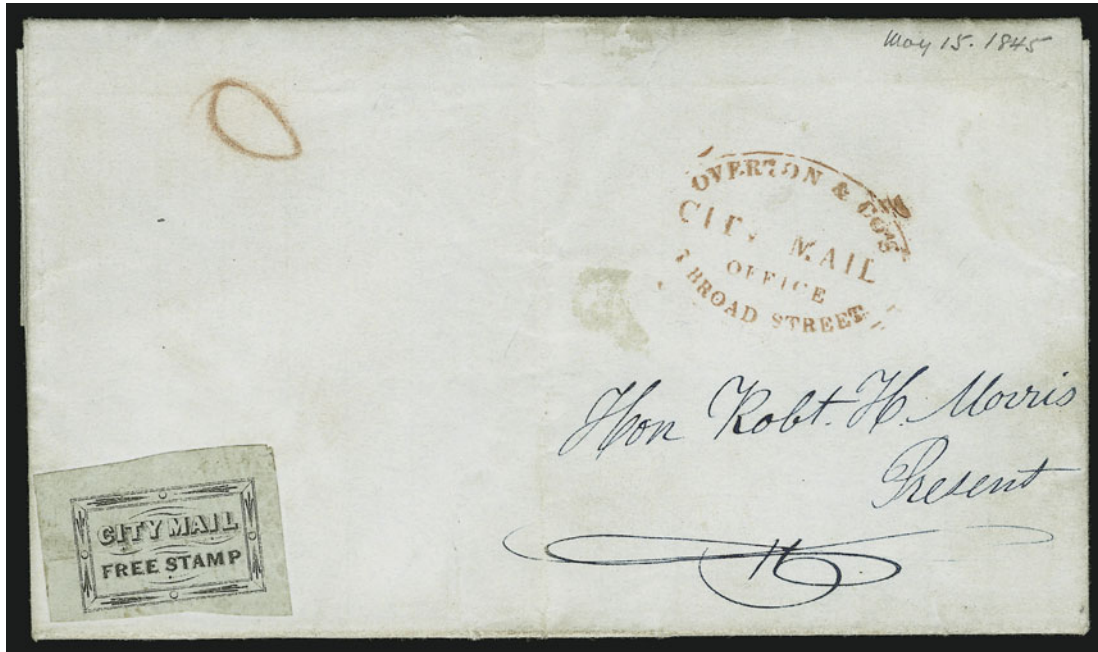 May 15. 1845
OVERTON & CO'S
CITY MAIL
OFFICE
7 BROAD STREET
Hon Robt. H. Morris
Present
CITY MAIL
FREE STAMP